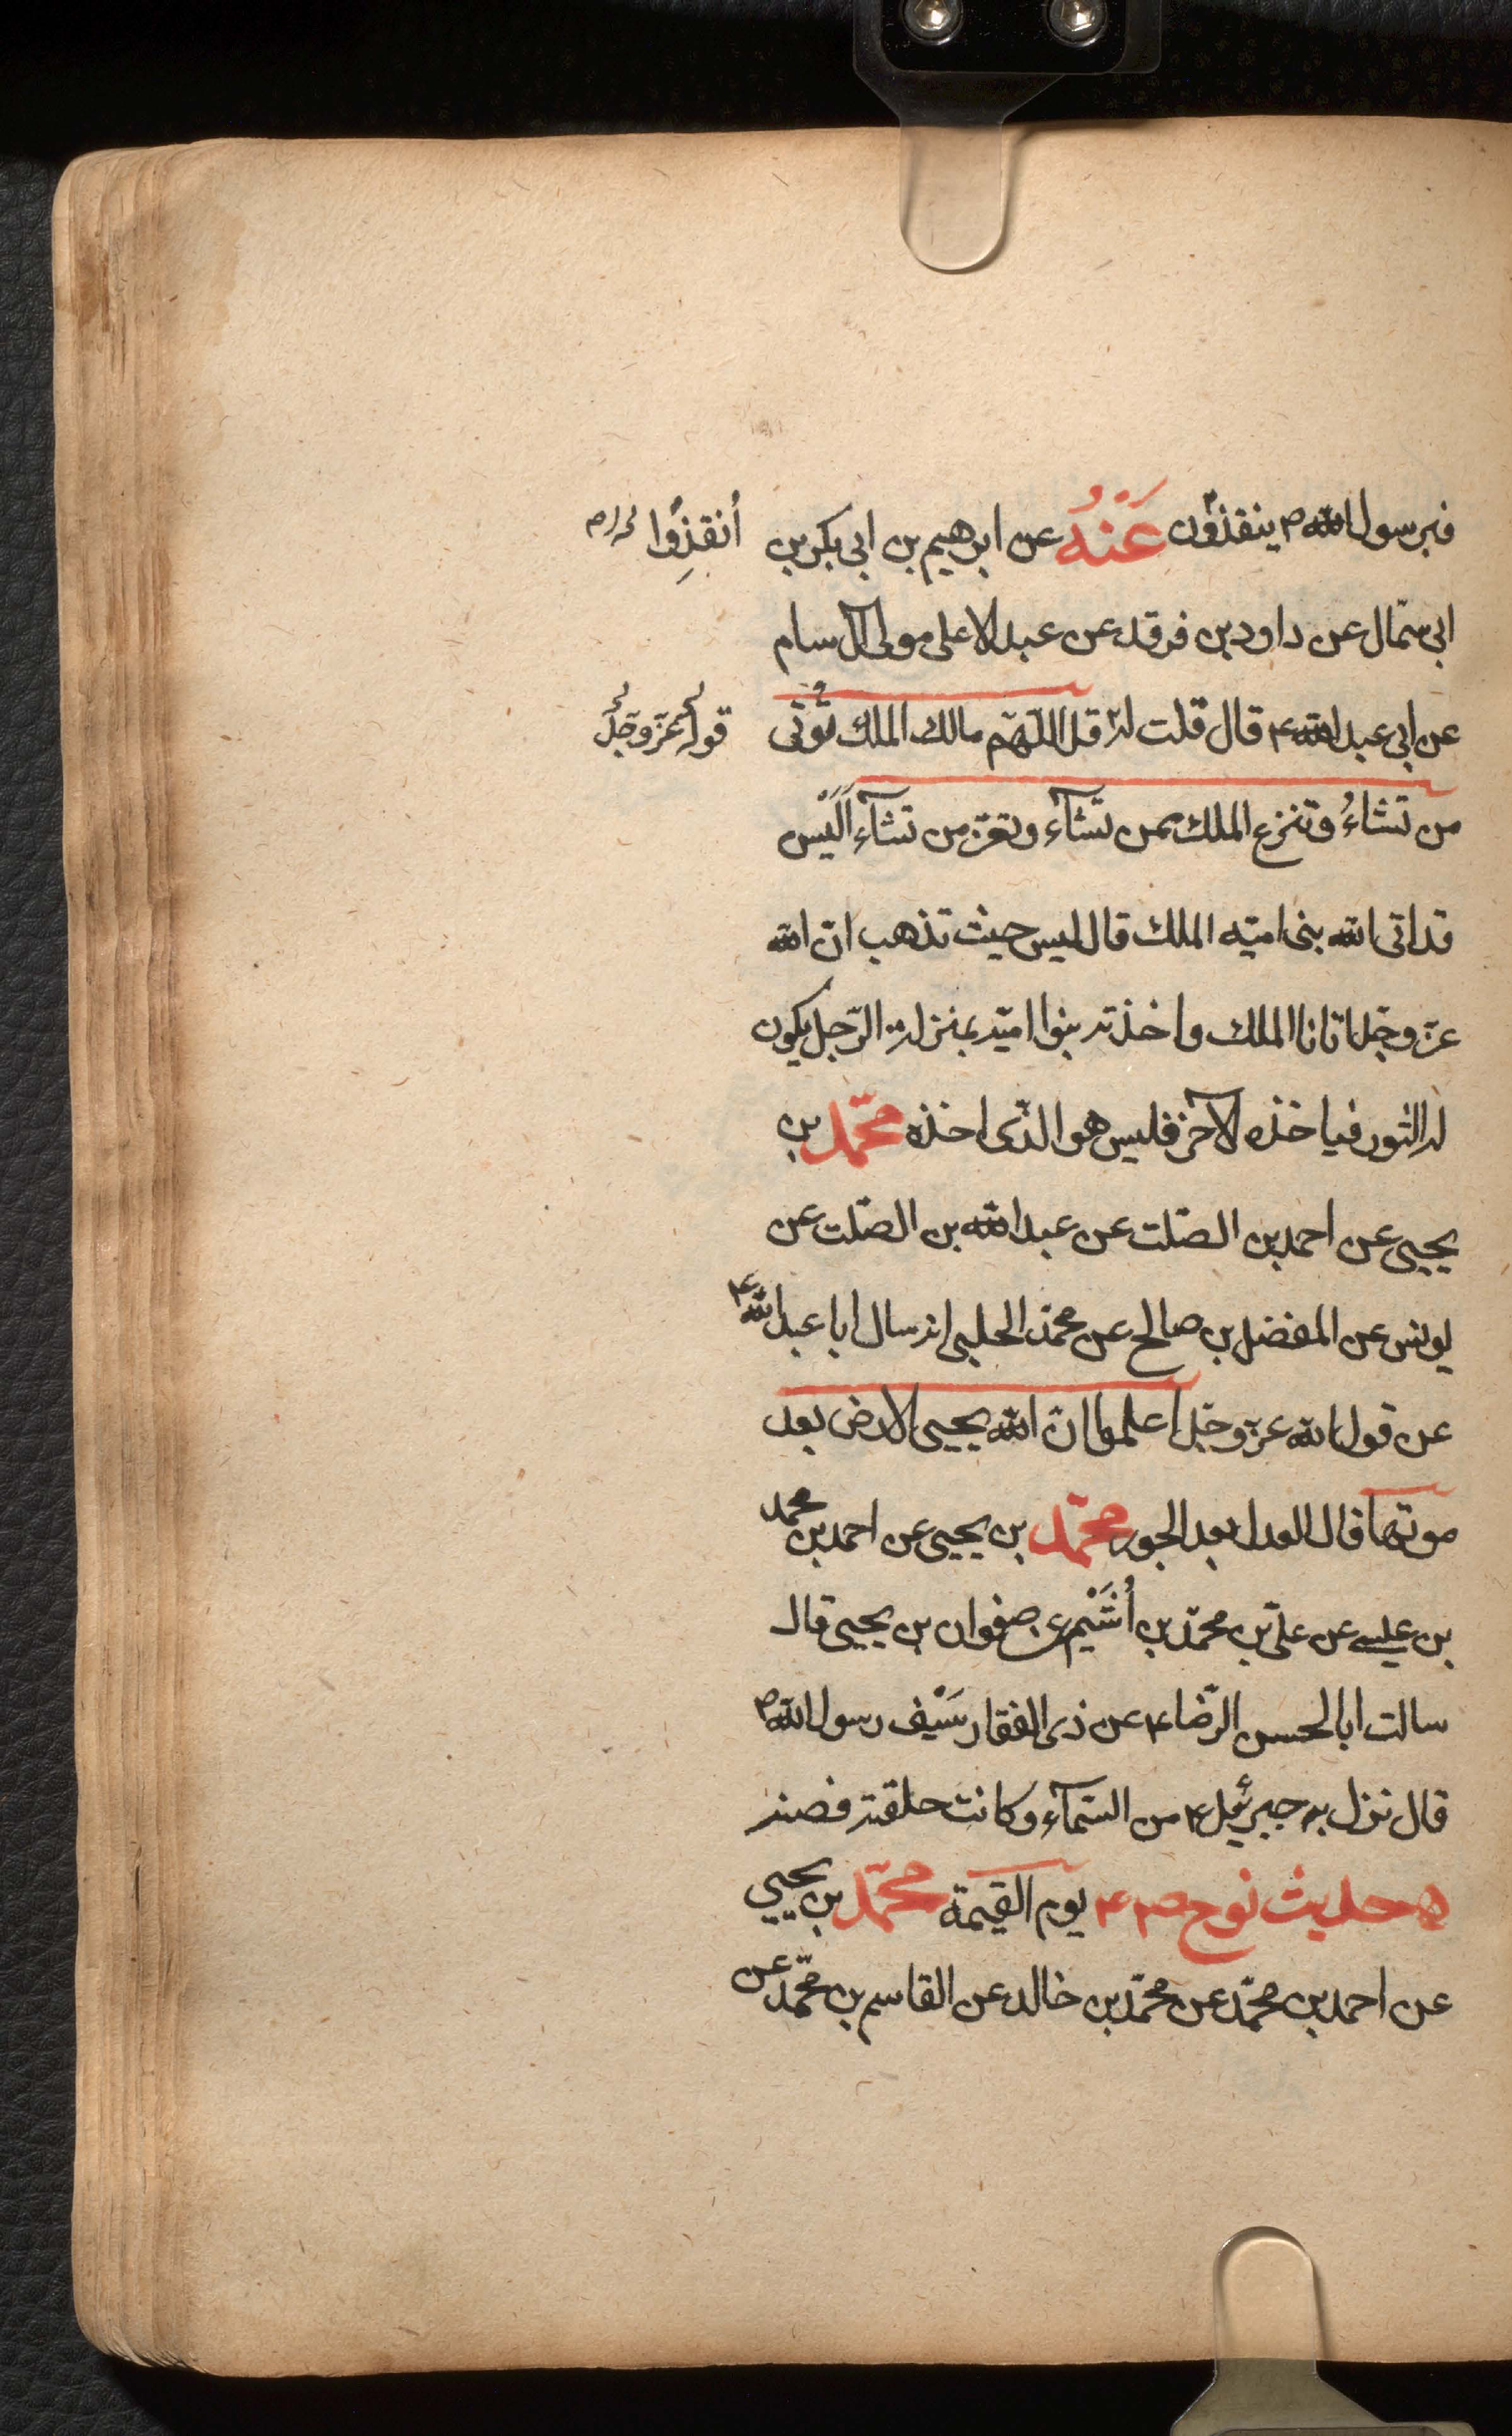 فبرسول الله ص ينقذون عَنْهُ عن ابرهيم بن ابى بكر بن
أنقذِوُا
ابى سمّال عن داود بن فرقد عن عبد الاعلى مولى آل سام
عن ابى عبد الله ع قال قلت له قل اللّهمّ مالك الملك تُؤتى
قوله عزّ وجلّ
من تشاءُ وتنزع الملك ممن تشآء وتعزّ من تشآء اَلَيْس
قد اتى الله بنى اميّه الملك قال ليس حيث تذهب انّ الله
عزّ وجلّ اتانا الملك واخذته بنوا اميّه بمنزلة الرّجل يكون
له الثوب فياخذه الآخر فليس هو الذّى اخذه محمّد بن
يحيى عن احمد بن الصّلت عن عبد الله بن الصّلت عن
يونس عن المفضل بن صالح عن محمّد الحلبى انه سال ابا عبد الله ع
عن قول الله عزّ وجلّ اعلموا انّ الله يحيى الارض بعد
موتها قال العدل بعد الجور محمّد بن يحيى عن احمد بن محمد
بن عيسى عن علىّ بن محمّد بن أُشَيْم عن صفوان بن يحيى قال
سالت ابا الحسن الرّضا ع عن ذى الفقار سَيْف رسول الله ص
قال نزل به جبرئيل ع من السّمآء وكانت حلقته فضته
حديث نوح ص ع يوم القيمة محمّد بن يحيى
عن احمد بن محمّد عن محمّد بن خالد عن القاسم بن محمّد عن